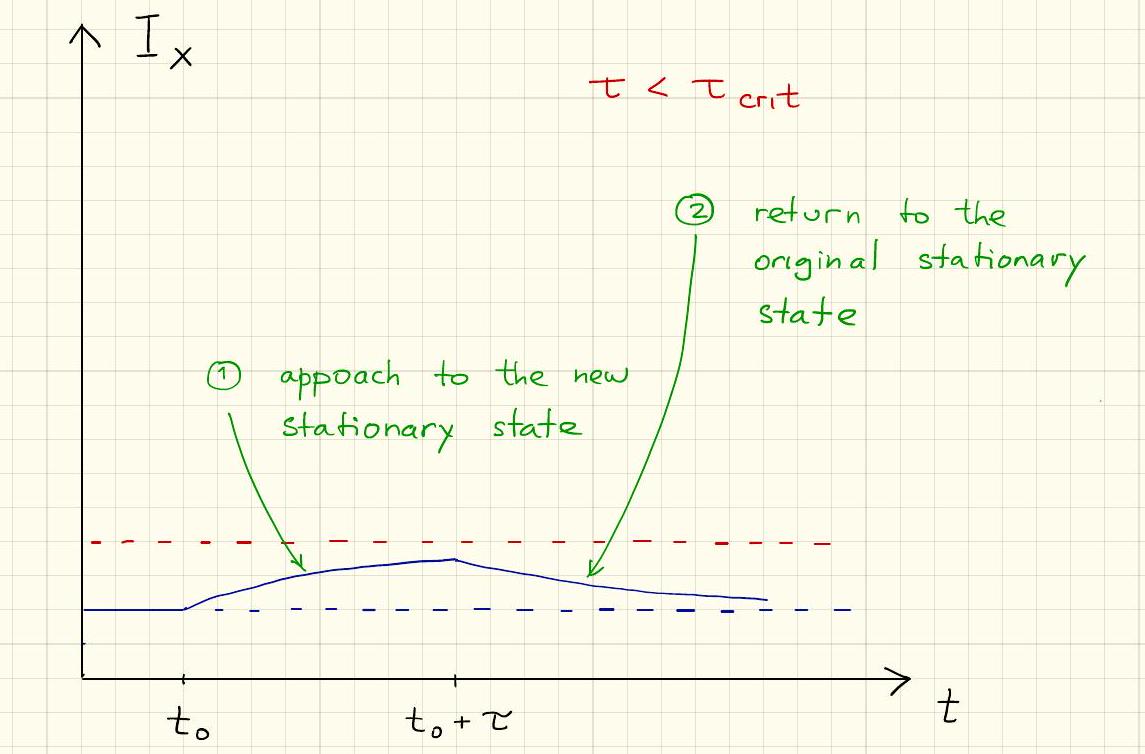 I x
τ < τ crit
② return to the
original stationary
state
① appoach to the new
stationary state
t₀
t₀ + τ
t